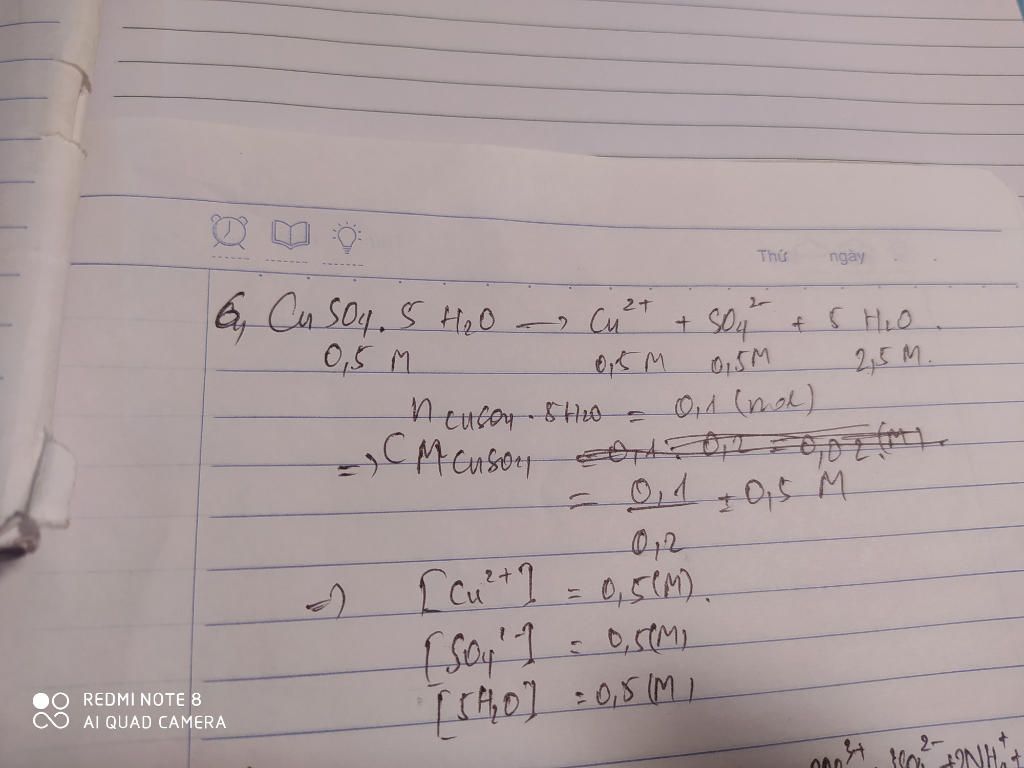 Thứ ngày
6, CuSO4. 5 H2O → Cu2+ + SO4 2- + 5 H2O.
0,5 M 0,5M 0,5M 2,5M.
n CuSO4 . 5H2O = 0,1 (mol)
=> CM CuSO4 = 0,1 . 0,2 = 0,02 (M)
= 0,1 = 0,5 M
0,2
=> [Cu2+] = 0,5(M).
[SO4 -] = 0,5(M)
[5H2O] = 0,5(M)
REDMI NOTE 8
AI QUAD CAMERA